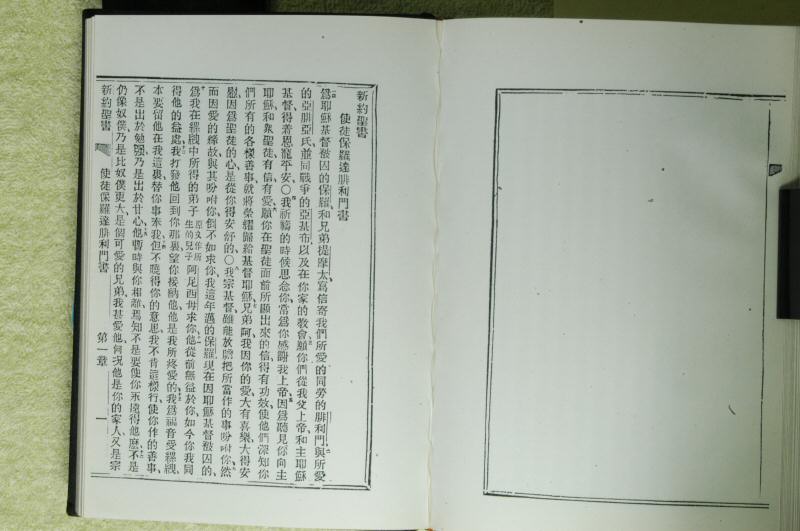 新約聖書
使徒保羅達腓利門書
爲耶穌基督被囚的保羅和兄弟提摩太寫信寄我們所愛的同勞的腓利門與所愛
的亞腓亞氏並同戰爭的亞基布以及在你家的教會願你們從我父上帝和主耶穌
基督得着恩寵平安〇我祈禱的時候思念你常爲你感謝我上帝因爲聽見你向主
耶穌和衆聖徒有信有愛願你在聖徒面前所顯出來的信得有功效使他們深知你
們所有的各樣善事就將榮耀歸給基督耶穌兄弟阿我因你的愛大有喜樂大得安
慰因爲聖徒的心是從你得安舒的〇我宗基督雖能放膽把所當作的事吩咐你然
而因愛的緣故與其吩咐你倒不如求你我這年邁的保羅現在因耶穌基督被囚的
爲我在縲絏中所得的弟子原文作所生的兒子阿尼西母求你他從前無益於你如今你我同
得他的益處我打發他回到你那裏望你接納他他是我所疼愛的我爲福音受縲絏
本要留他在我這裏替你事奉我但不曉得你的意思我不肯這樣行使你作的善事
不是出於勉强乃是出於甘心他暫時與你相離焉知不是要使你永遠得他麽不是
仍像奴僕乃是比奴僕更大是個可愛的兄弟我甚愛他何况他是你的家人又是宗
新約聖書 使徒保羅達腓利門書 第一章 一